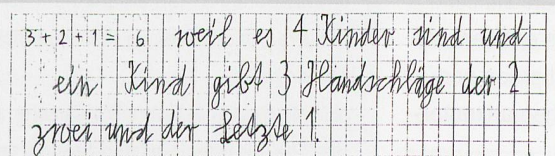 3 + 2 + 1 = 6 weil es 4 Kinder sind und
ein Kind gibt 3 Handschläge der 2
zwei und der letzte 1.